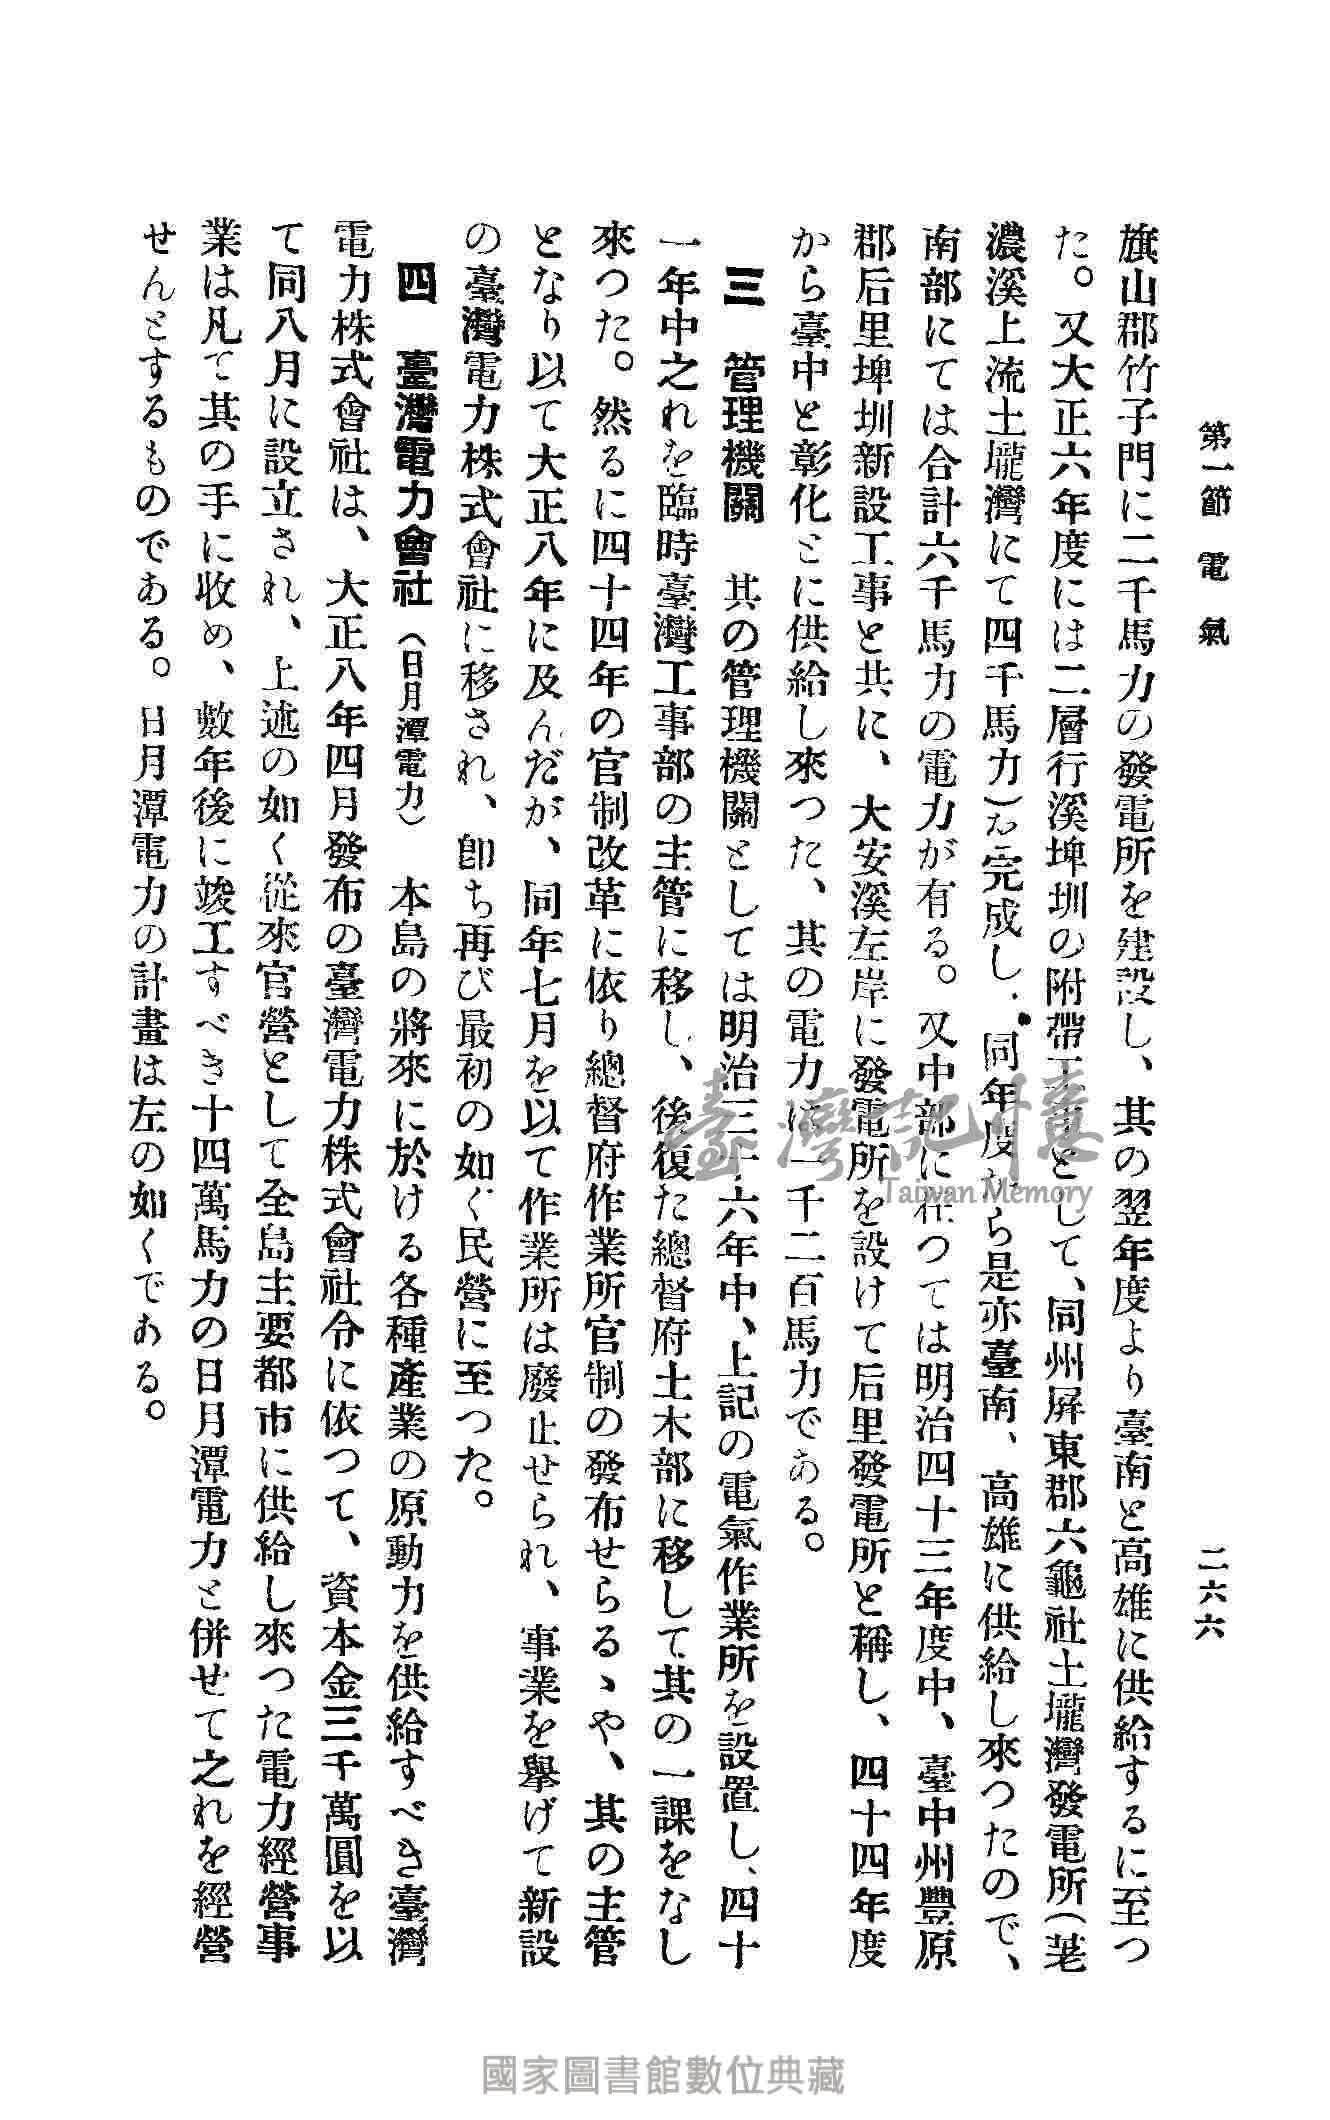 第一節　電氣
二六六
旗山郡竹子門に二千馬力の發電所を建設し、其の翌年度より臺南と高雄に供給するに至つ
た。又大正六年度には二層行溪埤圳の附帶工事として、同州屏東郡六龜社土壠灣發電所(荖
濃溪上流土壠灣にて四千馬力)を完成し、同年度から是亦臺南、高雄に供給し來つたので、
南部にては合計六千馬力の電力が有る。又中部に在つては明治四十三年度中、臺中州豐原
郡后里埤圳新設工事と共に、大安溪左岸に發電所を設けて后里發電所と稱し、四十四年度
から臺中と彰化とに供給し來つた、其の電力は一千二百馬力である。
三　管理機關　其の管理機關としては明治三十六年中、上記の電氣作業所を設置し、四十
一年中之れを臨時臺灣工事部の主管に移し、後復た總督府土木部に移して其の一課をなし
來つた。然るに四十四年の官制改革に依り總督府作業所官制の發布せらるゝや、其の主管
となり以て大正八年に及んだが、同年七月を以て作業所は廢止せられ、事業を擧げて新設
の臺灣電力株式會社に移され、卽ち再び最初の如く民營に至つた。
四　臺灣電力會社(日月潭電力)　本島の將來に於ける各種產業の原動力を供給すべき臺灣
電力株式會社は、大正八年四月發布の臺灣電力株式會社令に依つて、資本金三千萬圓を以
て同八月に設立され、上述の如く從來官營として全島主要都市に供給し來つた電力經營事
業は凡て其の手に收め、數年後に竣工すべき十四萬馬力の日月潭電力と併せて之れを經營
せんとするものである。日月潭電力の計畫は左の如くである。
臺灣記憶
Taiwan Memory
國家圖書館數位典藏